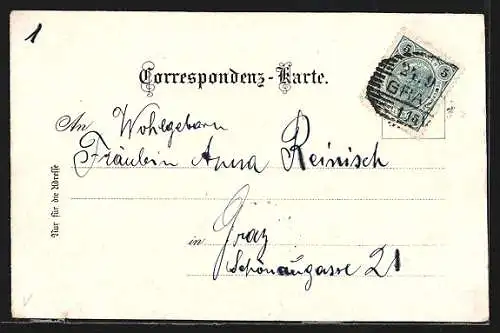 1
Correspondenz-Karte.
5 5
21.9
GRA
An Wohlgeborn
Fräulein Anna Reinisch
in Graz
Schönaugasse 21
Nur für die Adresse